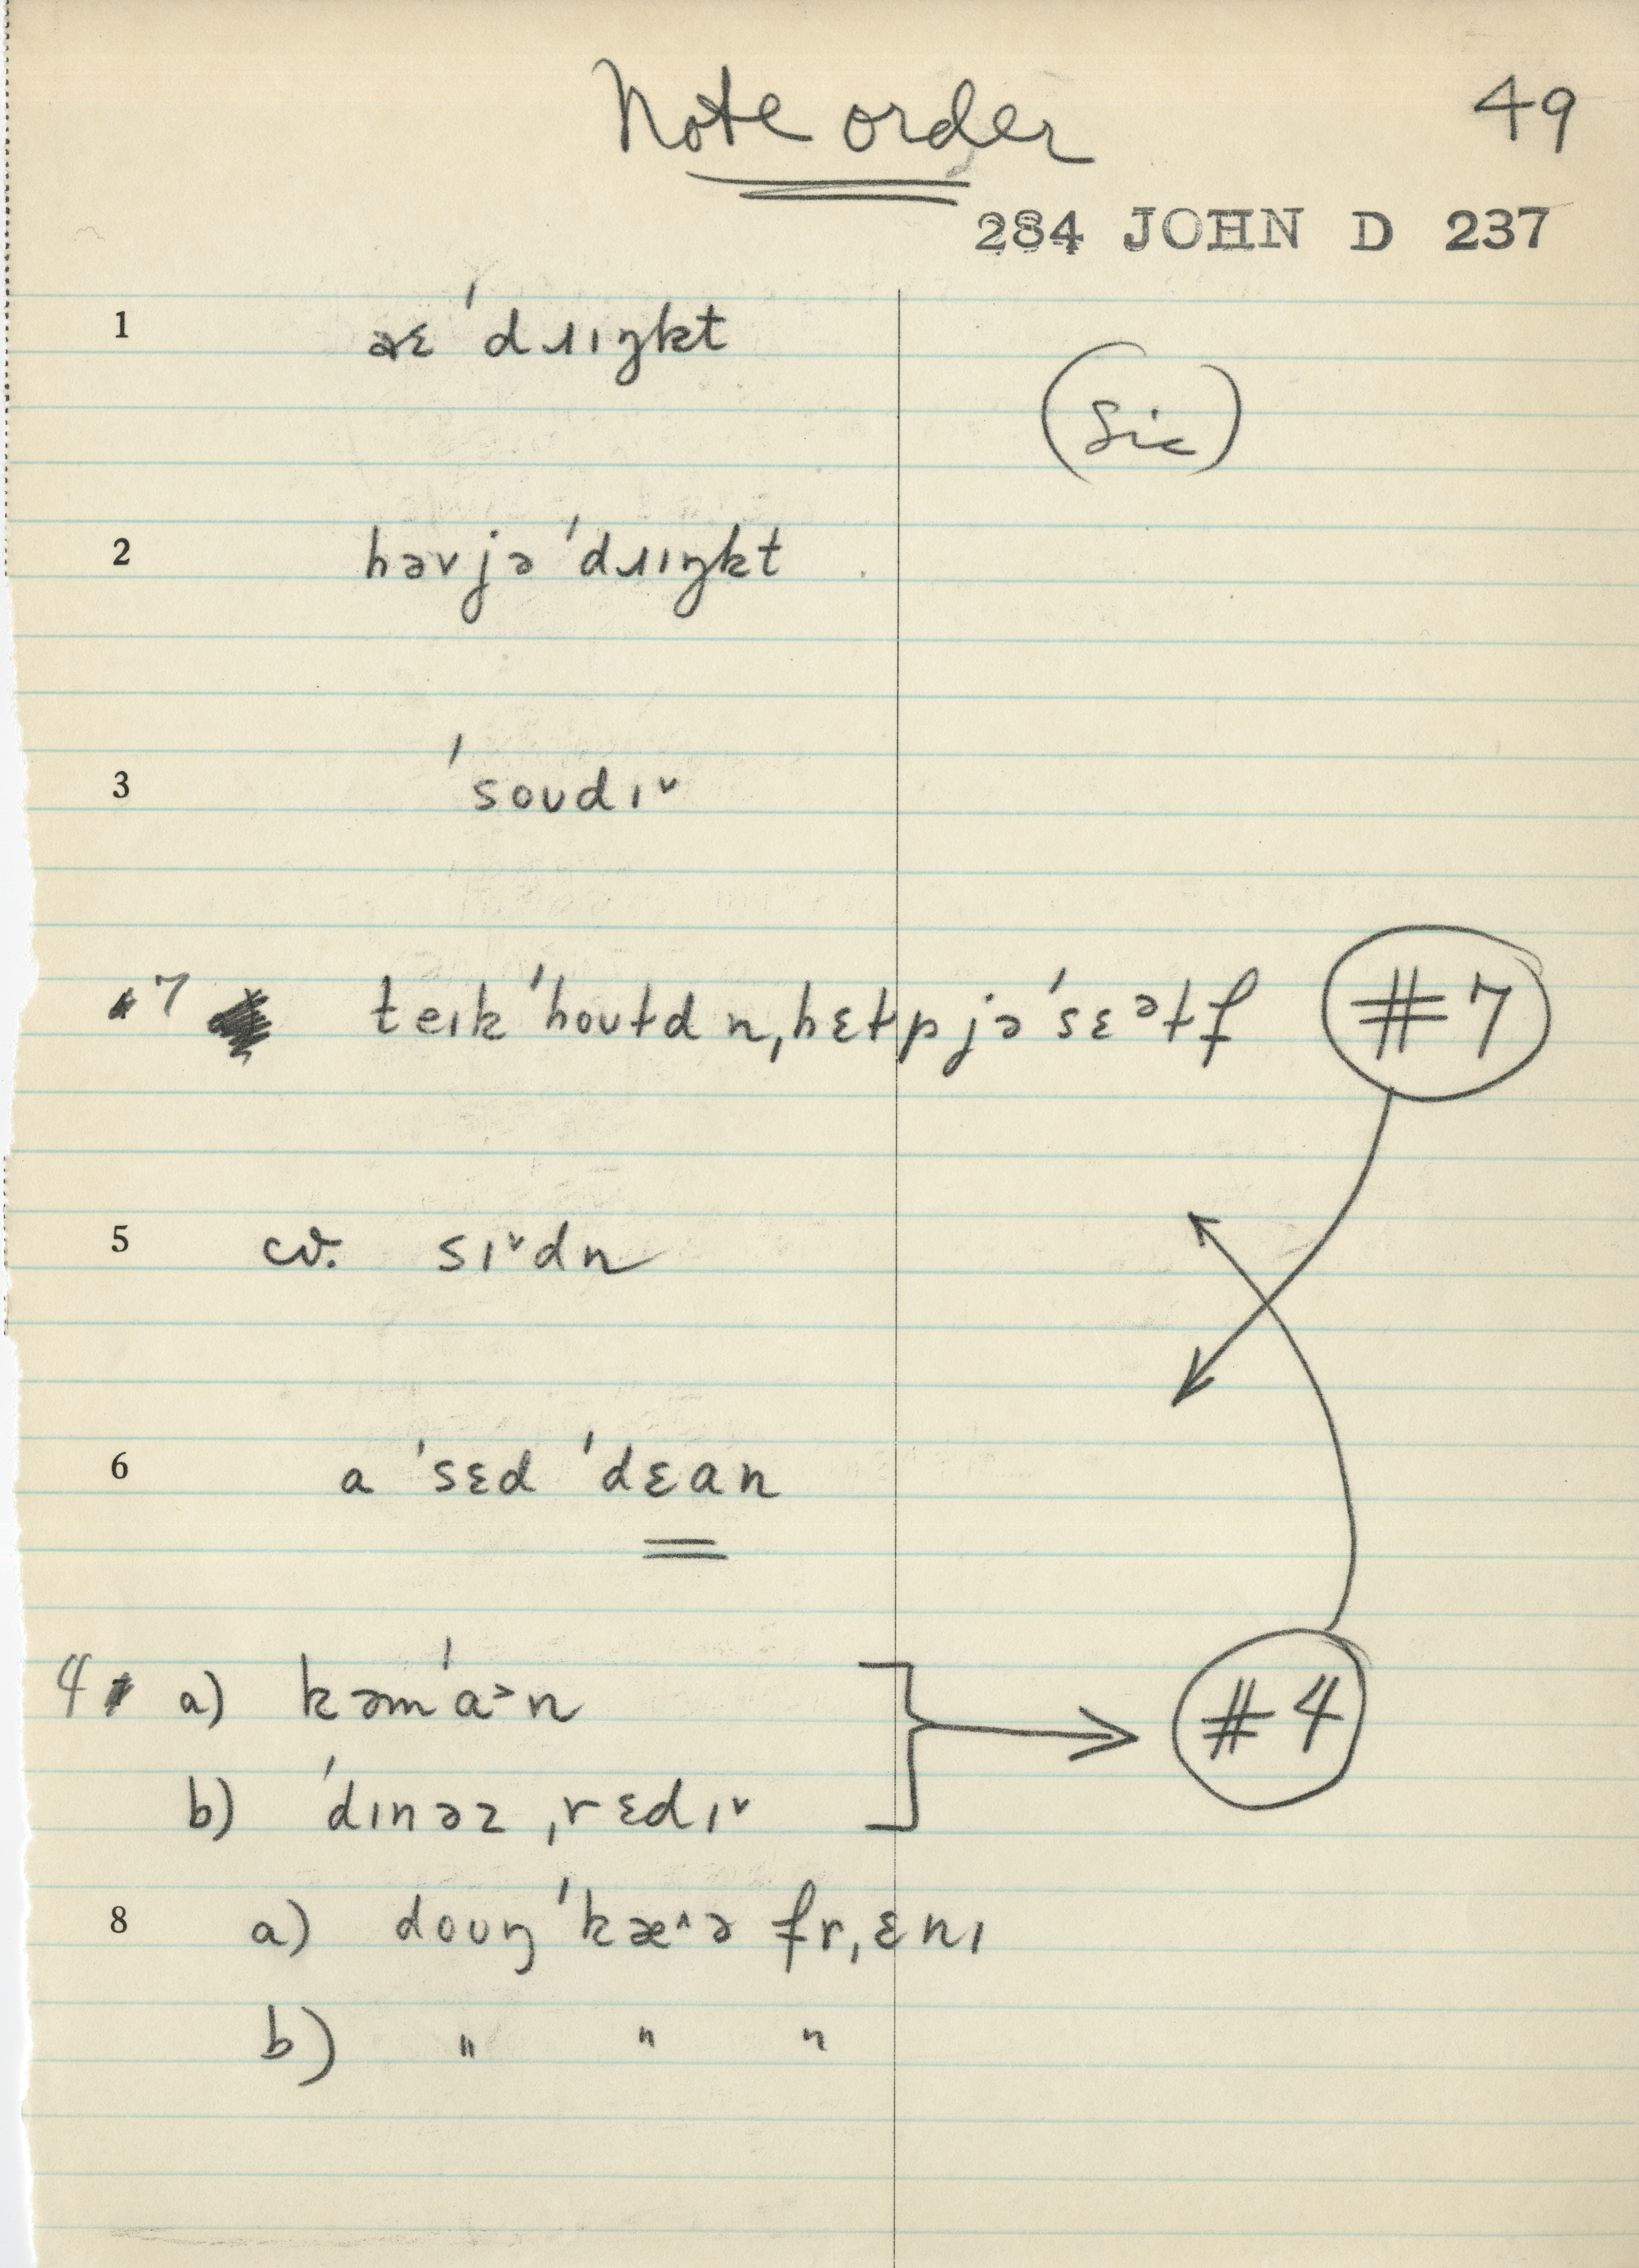 Note order
49
284 JOHN D 237
1 aɛ 'dɹɪŋkt
(Sic)
2 həvjə 'dɹɪŋkt
3 'soʊdɪ˅
#7 teɪk 'hoʊɫdn̩ hɛɫpjə 'sɛᵊɫf #7
5 cv. sɪ˅dn
6 a 'sɛd 'dɛan
4 a) kəm'a˃n
#4
b) 'dɪnəz ˌrɛdɪ˅
8 a) doʊŋ 'kæ˄ə frˌɛnɪ
b) " " "